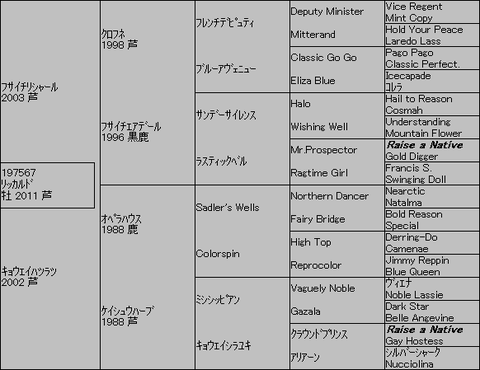 フサイチリシャール
2003 芦
197567
リッカルド
牡 2011 芦
キョウエイハツラツ
2002 芦
クロフネ
1998 芦
フサイチエアデール
1996 黒鹿
オペラハウス
1988 鹿
ケイシュウハーブ
1988 芦
フレンチデピュティ
ブルーアヴェニュー
サンデーサイレンス
ラスティックベル
Sadler's Wells
Colorspin
ミシシッピアン
キョウエイシラユキ
Deputy Minister
Mitterand
Classic Go Go
Eliza Blue
Halo
Wishing Well
Mr.Prospector
Ragtime Girl
Northern Dancer
Fairy Bridge
High Top
Reprocolor
Vaguely Noble
Gazala
クラウンドプリンス
アリアーン
Vice Regent
Mint Copy
Hold Your Peace
Laredo Lass
Pago Pago
Classic Perfect.
Icecapade
コレラ
Hail to Reason
Cosmah
Understanding
Mountain Flower
Raise a Native
Gold Digger
Francis S.
Swinging Doll
Nearctic
Natalma
Bold Reason
Special
Derring-Do
Camenae
Jimmy Reppin
Blue Queen
ヴィエナ
Noble Lassie
Dark Star
Belle Angevine
Raise a Native
Gay Hostess
シルバーシャーク
Nucciolina